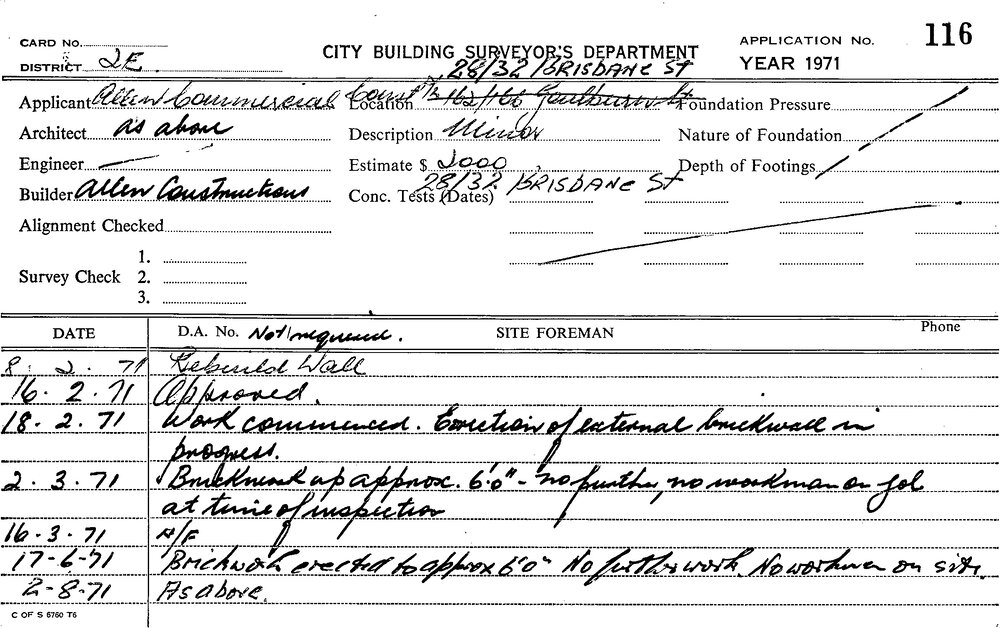 116
CARD No.
CITY BUILDING SURVEYOR'S DEPARTMENT
APPLICATION No.
DISTRICT 2E.
28/32 BRISBANE ST
YEAR 1971
Applicant Allen Commercial Const Location 162/166 Goulburn St Foundation Pressure
Architect as above Description Minor Nature of Foundation
Engineer Estimate $ 2000 Depth of Footings
Builder Allen Constructions Conc. Tests (Dates) 28/32 BRISBANE ST
Alignment Checked
1.
Survey Check 2.
3.
DATE D.A. No. Not required. SITE FOREMAN Phone
8. 2. 71 Rebuild Wall
16. 2. 71 Approved.
18. 2. 71 Work commenced. Erection of external brickwall in
progress.
2. 3. 71 Brickwork up approx. 6'0" - no further, no workman on job
at time of inspection
16-3-71 N/F
17-6-71 Brickwork erected to approx 6'0" No further work. No workmen on site.
2-8-71 As above.
C OF S 6760 T6